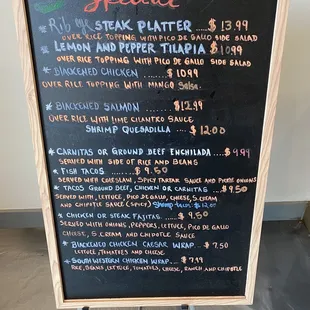 Special
* Rib eye STEAK PLATTER ....$ 13.99
OVER RICE TOPPING WITH PICO DE GALLO SIDE SALAD
* LEMON AND PEPPER TILAPIA $10.99
OVER RICE TOPPING WITH PICO DE GALLO SIDE SALAD
* BLACKENED CHICKEN ..... $ 10.99
OVER RICE TOPPING WITH MANGO Salsa.
* BLACKENED SALMON ...... $12.99
OVER RICE WITH LIME CILANTRO SAUCE
SHRIMP QUESADILLA .... $ 12.00
* CARNITAS OR GROUND BEEF ENCHILADA ...$ 9.99
SERVED WITH SIDE OF RICE AND BEANS
* FISH TACOS ..... $ 9.50
SERVED WITH COLESLAW, SPICY TARTAR SAUCE AND PICKLE ONIONS
* TACOS GROUND BEEF, CHICKEN OR CARNITAS ...$ 9.50
SERVED WITH, LETTUCE, PICO DE GALLO, CHEESE, S.CREAM
AND CHIPOTLE SAUCE (SPICY) Shrimp tacos $12.00
* CHICKEN OR STEAK FAJITAS. .. $ 9.50
SERVED WITH ONIONS, PEPPERS, LETTUCE, PICO DE GALLO
CHEESE, S.CREAM AND CHIPOTLE SAUCE
* BLACKENED CHICKEN CAESAR WRAP .. $ 7.50
LETTUCE, TOMATOES AND CHEESE
* SOUTH WESTERN CHICKEN WRAP... $ 7.99
RICE, BEANS, LETTUCE, TOMATOES, CHEESE, RANCH AND CHIPOTLE